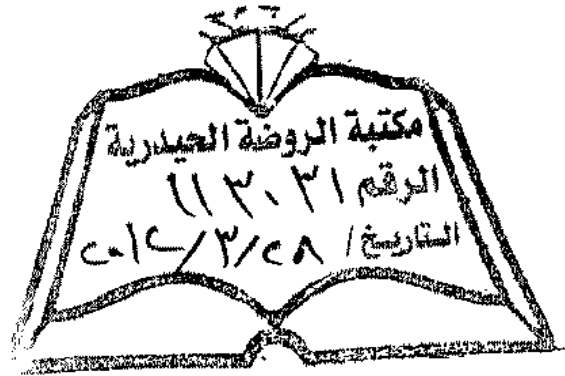 مكتبة الروضة الحيدرية
الرقم ١١٣٠٣١
التاريخ / ٢٨/٣/٢٠١٢